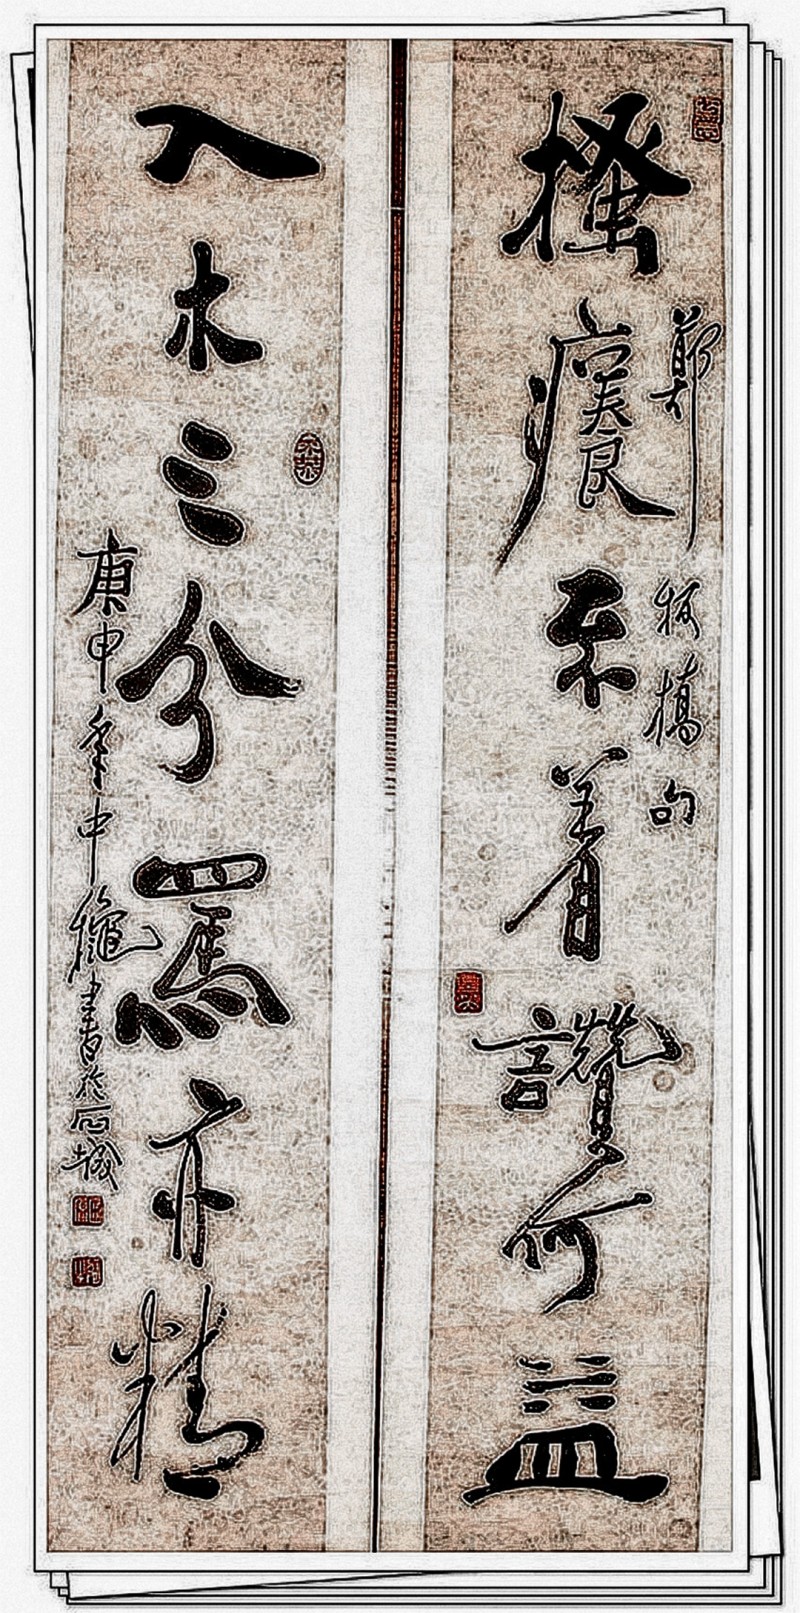 搔癢不着讚何益
鄭板橋句
入木三分罵亦精
庚申年中龝書於石城